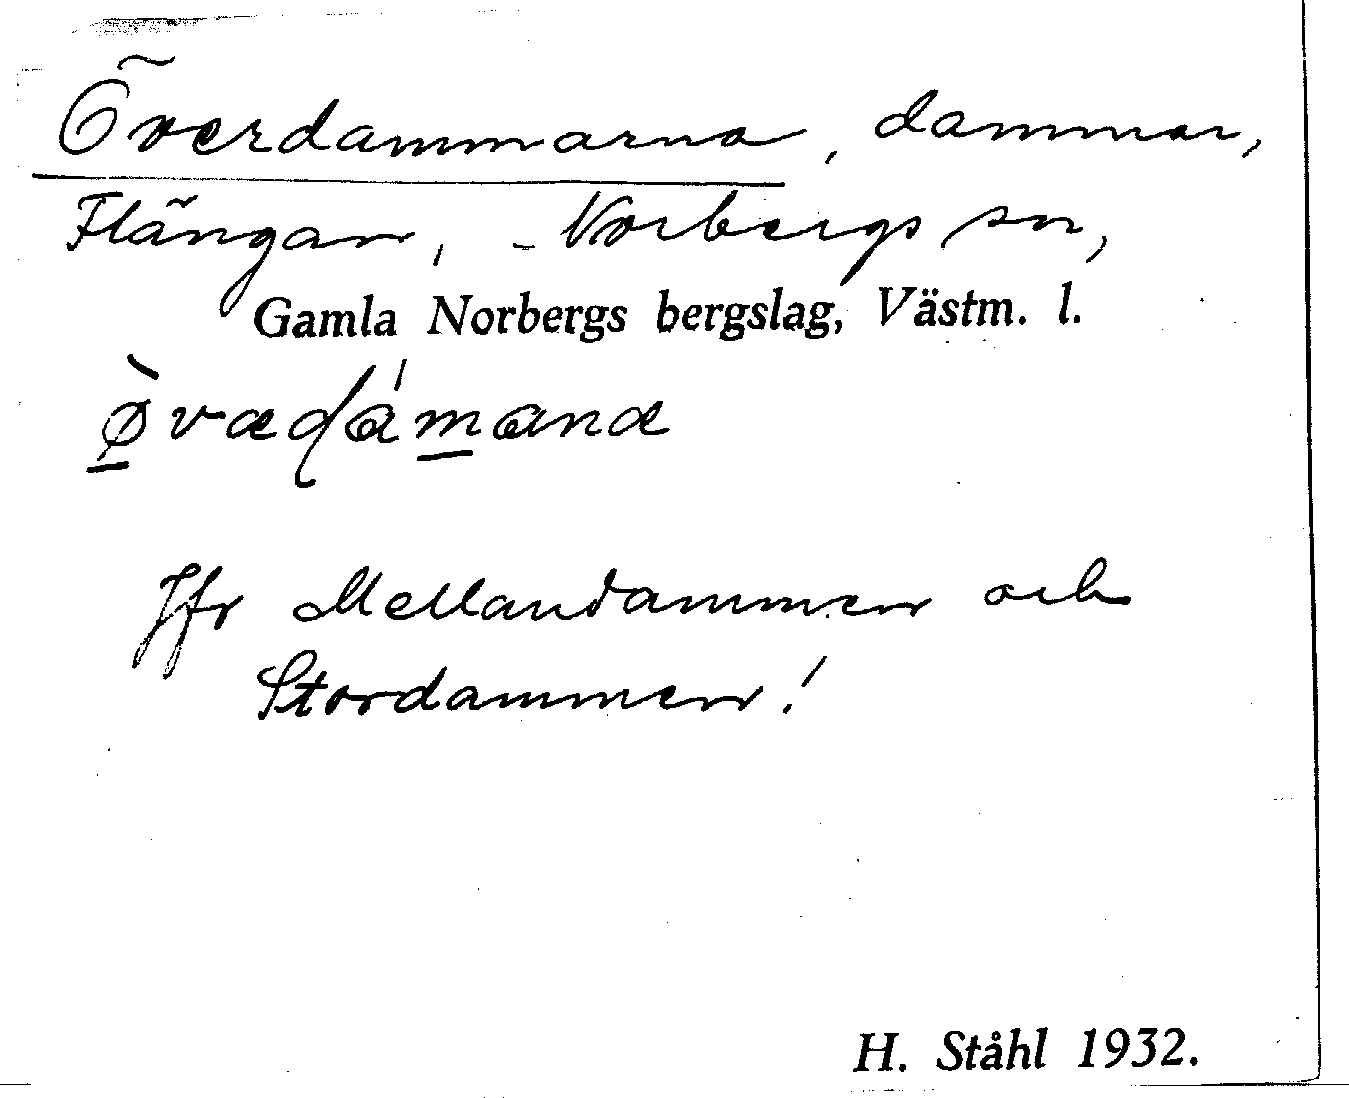 Överdammarna, dammar,
Flängan, - Norbergs sn,
Gamla Norbergs bergslag, Västm. l.
ø̱̀vædám̱ana
Jfr Mellandammen och
Stordammen!
H. Ståhl 1932.